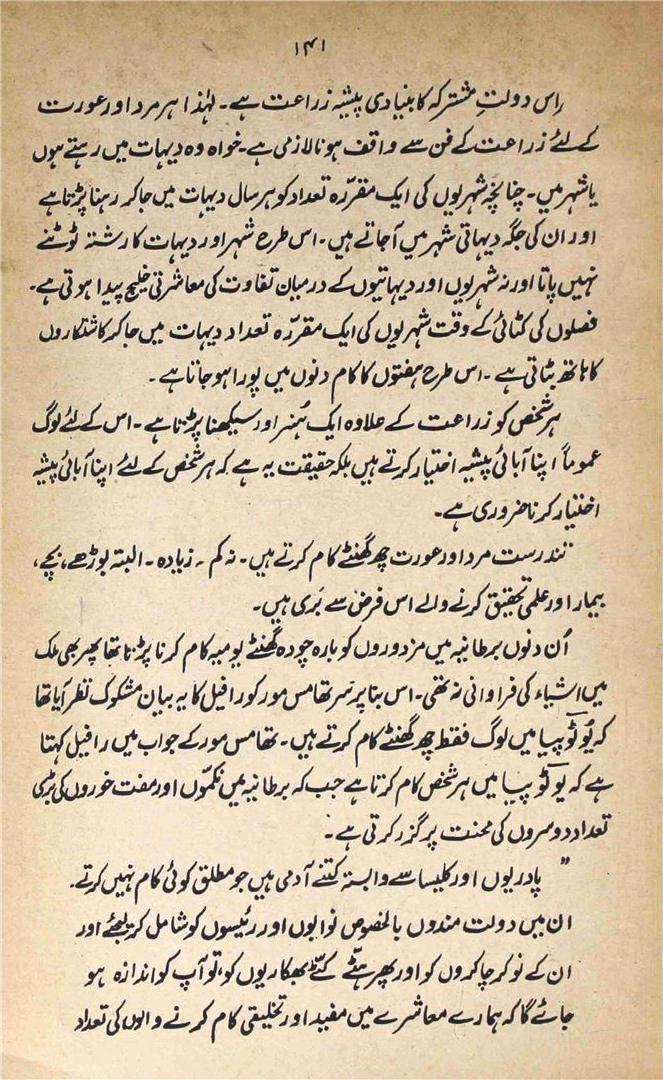 ۱۴۱
اِس دولتِ مشترکہ کا بنیادی پیشہ زراعت ہے۔ لہٰذا ہر مرد اور عورت
کے لئے زراعت کے فن سے واقف ہونا لازمی ہے۔ خواہ وہ دیہات میں رہتے ہوں
یا شہر میں۔ چنانچہ شہریوں کی ایک مقررّہ تعداد کو ہر سال دیہات میں جا کر رہنا پڑتا ہے
اور ان کی جگہ دیہاتی شہر میں آجاتے ہیں۔ اس طرح شہر اور دیہات کا رشتہ ٹوٹنے
نہیں پاتا اور نہ شہریوں اور دیہاتیوں کے درمیان تفاوت کی معاشرتی خلیج پیدا ہوتی ہے۔
فصلوں کی کٹائی کے وقت شہریوں کی ایک مقررّہ تعداد دیہات میں جا کر کاشتکاروں
کا ہاتھ بٹاتی ہے۔ اس طرح ہفتوں کا کام دنوں میں پورا ہو جاتا ہے۔
ہر شخص کو زراعت کے علاوہ ایک ہُنر اور سیکھنا پڑتا ہے۔ اس کے لئے لوگ
عموماً اپنا آبائی پیشہ اختیار کرتے ہیں بلکہ حقیقت یہ ہے کہ ہر شخص کے لئے اپنا آبائی پیشہ
اختیار کرنا ضروری ہے۔
تندرست مرد اور عورت چھ گھنٹے کام کرتے ہیں۔ نہ کم ۔ زیادہ۔ البتہ بوڑھے، بچے،
بیمار اور علمی تحقیق کرنے والے اس فرض سے بَری ہیں۔
اُن دنوں برطانیہ میں مزدوروں کو بارہ چودہ گھنٹے یومیہ کام کرنا پڑتا تھا پھر بھی ملک
میں اشیاء کی فراوانی نہ تھی۔ اس بنا پر سَر تھامس مور کو رافیل کا یہ بیان مشکوک نظر آیا تھا
کہ یُوٹوپیا میں لوگ فقط چھ گھنٹے کام کرتے ہیں۔ تھامس مور کے جواب میں رافیل کہتا
ہے کہ یوٹوپیا میں ہر شخص کام کرتا ہے جب کہ برطانیہ میں نکمّوں اور مفت خوروں کی بڑی
تعداد دوسروں کی محنت پر گزر کرتی ہے۔
" پادریوں اور کلیسا سے وابستہ کتنے آدمی ہیں جو مطلق کوئی کام نہیں کرتے۔
ان میں دولت مندوں بالخصوص نوابوں اور رئیسوں کو شامل کر لیجئے اور
ان کے نوکر چاکروں کو اور پھر ہٹّے کٹّے بھکاریوں کو، تو آپ کو اندازہ ہو
جائے گا کہ ہمارے معاشرے میں مفید اور تخلیقی کام کرنے والوں کی تعداد